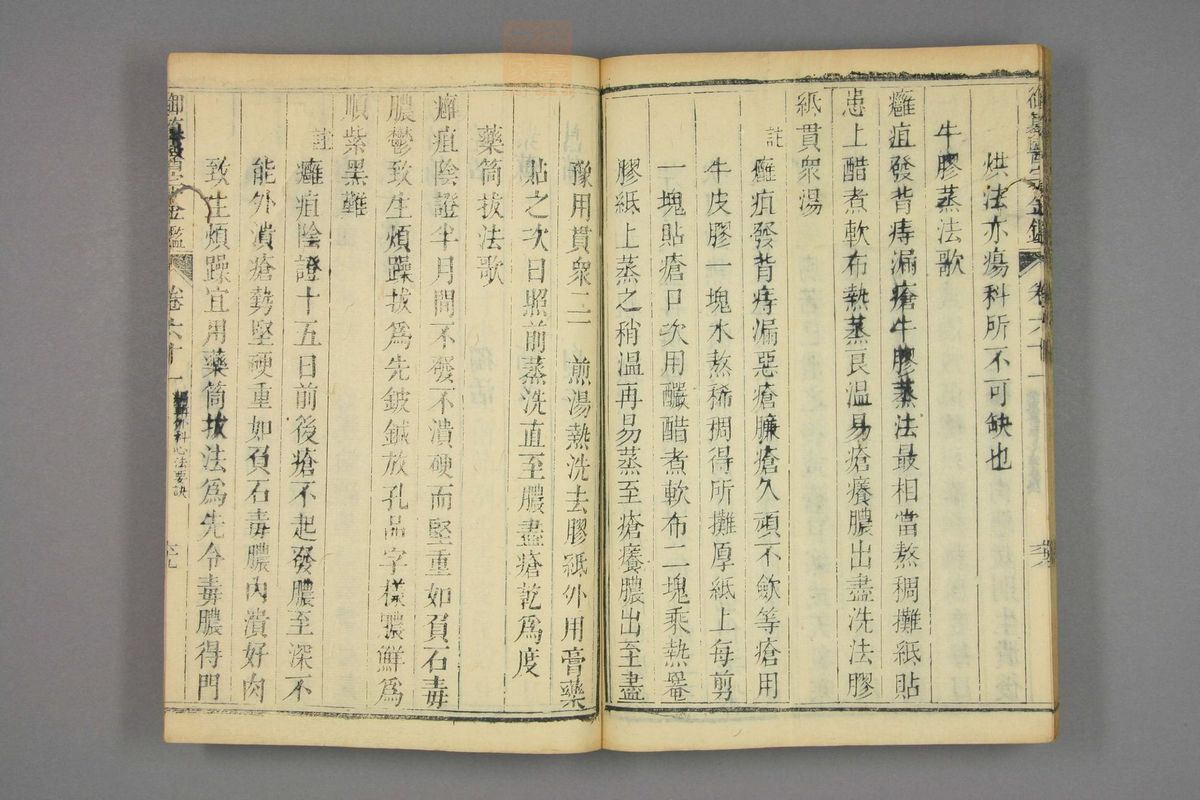 烘法亦瘍科所不可缺也
牛膠蒸法歌
癰疽發背痔漏瘡牛膠蒸法最相當熬稠攤紙貼
患上醋煮軟布熱蒸良溫易瘡癢膿出盡洗法膠
紙貫衆湯
註
癰疽發背痔漏惡瘡臁瘡久頑不斂等瘡用
牛皮膠一塊水熬稀稠得所攤厚紙上每剪
一塊貼瘡口次用釅醋煮軟布二塊乘熱罨
膠紙上蒸之稍溫再易蒸至瘡癢膿出至盡
豫用貫衆二 煎湯熱洗去膠紙外用膏藥
貼之次日照前蒸洗直至膿盡瘡乾爲度
藥筒拔法歌
癰疽陰證半月間不發不潰硬而堅重如負石毒
膿鬱致生煩躁拔爲先鈹鍼放孔品字樣膿鮮爲
順紫黑難
註
癰疽陰證十五日前後瘡不起發膿至深不
能外潰瘡勢堅硬重如負石毒膿內潰好肉
致生煩躁宜用藥筒拔法爲先令毒膿得門
金鑑 卷六十一 編輯外科心法要訣